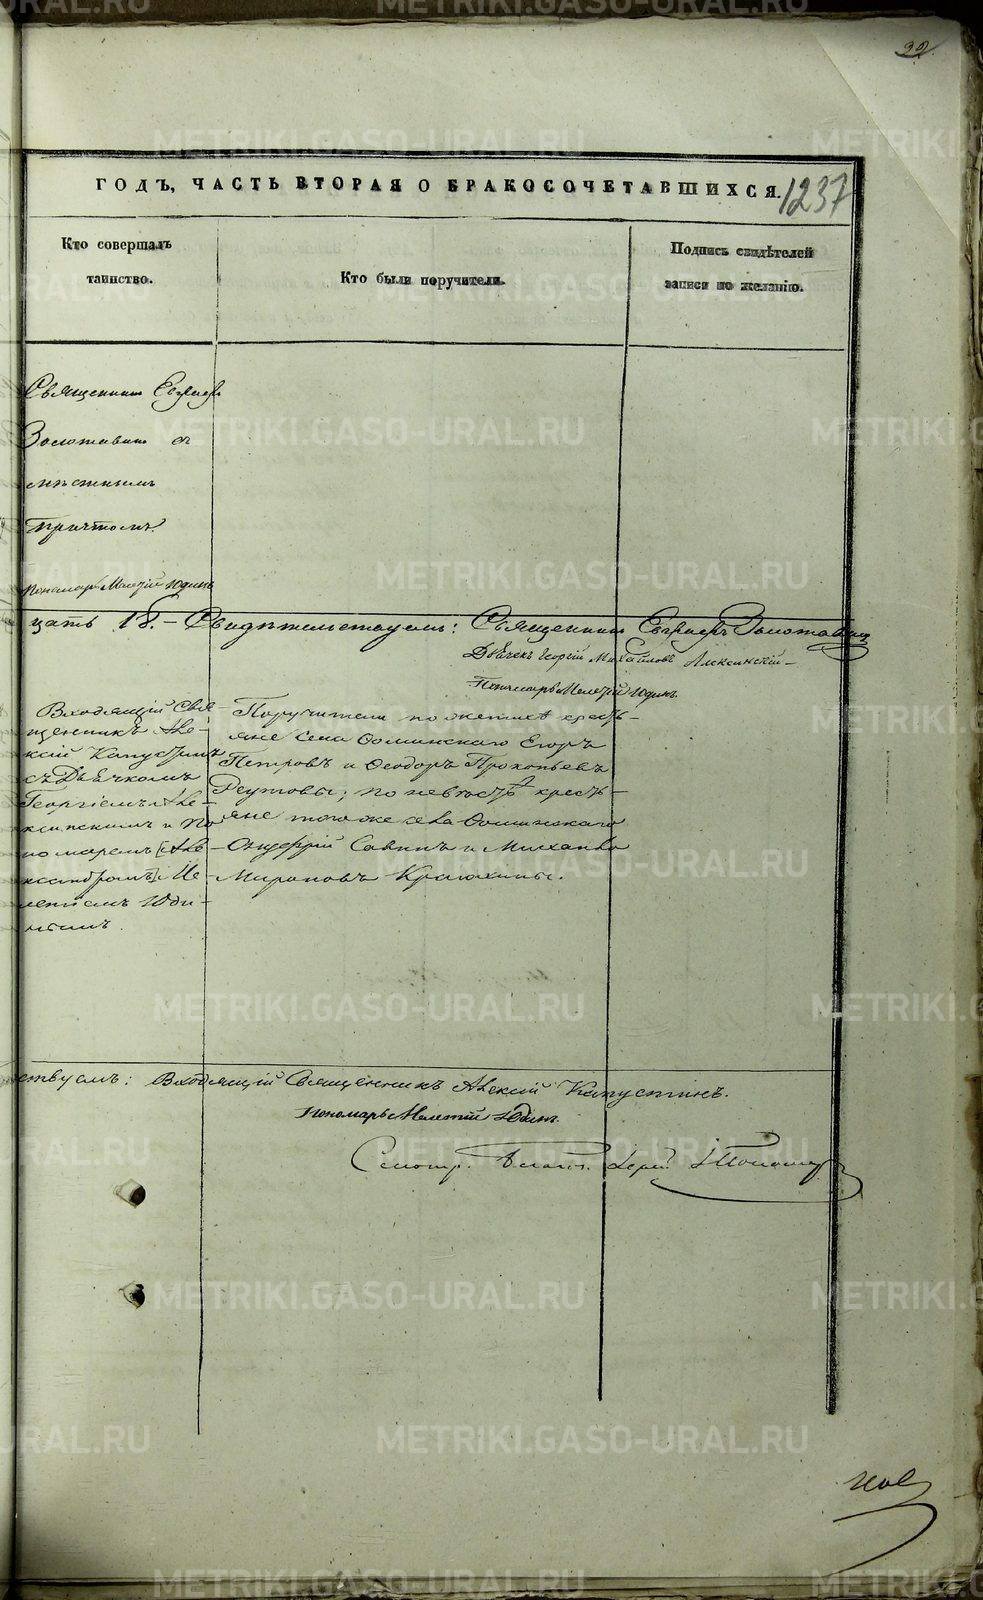 32
ГОДЪ, ЧАСТЬ ВТОРАЯ О БРАКОСОЧЕТАВШИХСЯ.
1237
Кто совершалъ
таинство.
Кто были поручители.
Подпись свидѣтелей
записи по желанію.
Священникъ
Золотавинъ съ
мѣстнымъ
причтомъ.
Пономарь Мелетій Юдинъ
цать 18. – Свидѣтельствуемъ: Священникъ Золотавинъ
Дьячекъ Георгій Михайловъ Алексинскій –
Пономарь Мелетій Юдинъ
Входящій Свя
щенникъ Але-
ксій Капустинъ
съ Дьячкомъ
Георгіемъ Але-
ксинскимъ и По
номаремъ [Але-
ксандромъ] Ме-
летіемъ Юди-
нымъ.
Поручители по женихѣ кресть-
яне села Фоминскаго Егоръ
Петровъ и Ѳеодоръ Прокопьевъ
Реутовы; по невѣстѣ кресть-
яне того же села Фоминскаго
Савинъ и Михаилъ
Мироновъ Крагохины.
ствуемъ: Входящій Священникъ Алексій Капустинъ.
Пономарь Мелетій Юдинъ.
Смотр.